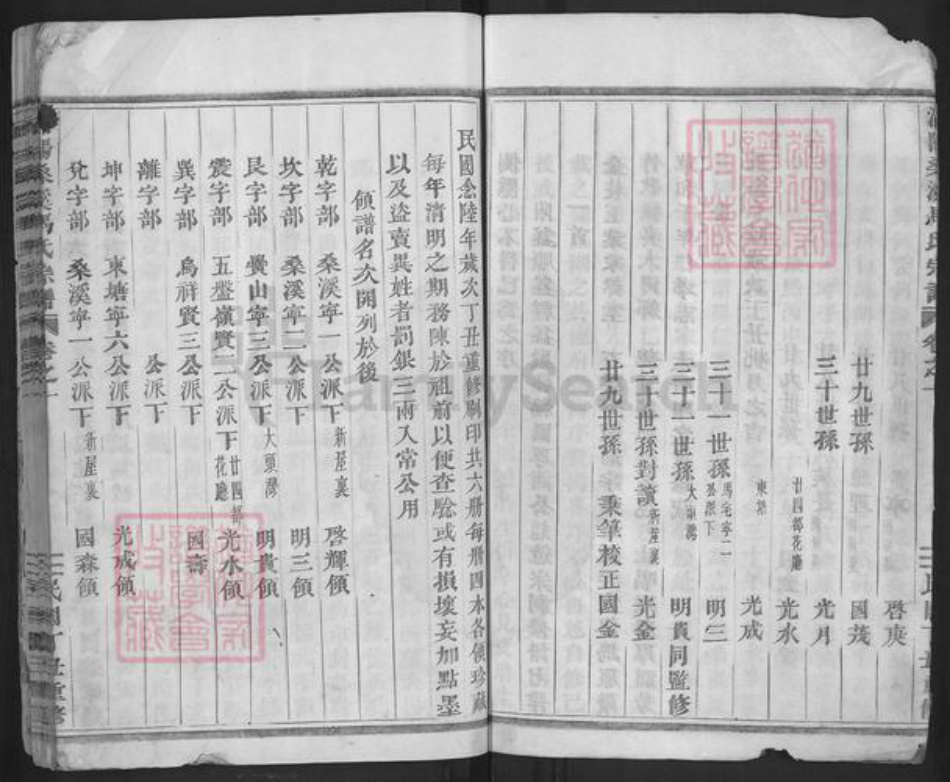 啓庚
廿九世孫 國茂
三十世孫 光月
廿四都花廳 光水
東塘 光成
三十一世孫 馬宅寧一公派下 明三
三十一世孫 大頭灣 明貴 同監修
三十世孫 對讀 新屋裏 光金
廿九世孫 秉筆校正 國金
民國念陸年歲次丁丑重修刷印共六册每册四本各儀珍藏
每年清明之期務陳於祖前以便查驗或有損壞妄加點墨
以及盜賣異姓者罰銀三兩入常公用
領譜名次開列於後
乾字部 桑溪寧一公派下 新屋裏 啓輝領
坎字部 桑溪寧二公派下 明三領
艮字部 黌山寧三公派下 大頭灣 明貴領
震字部 五盤嶺賢二公派下 廿四都花廳 光水領
巽字部 烏祥賢三公派下 國壽
離字部 公派下
坤字部 東塘寧六公派下 光成領
兌字部 桑溪寧一公派下 新屋裏 國森領
桑溪馬氏宗譜 卷之一 民國丁丑重修
FamilySearch